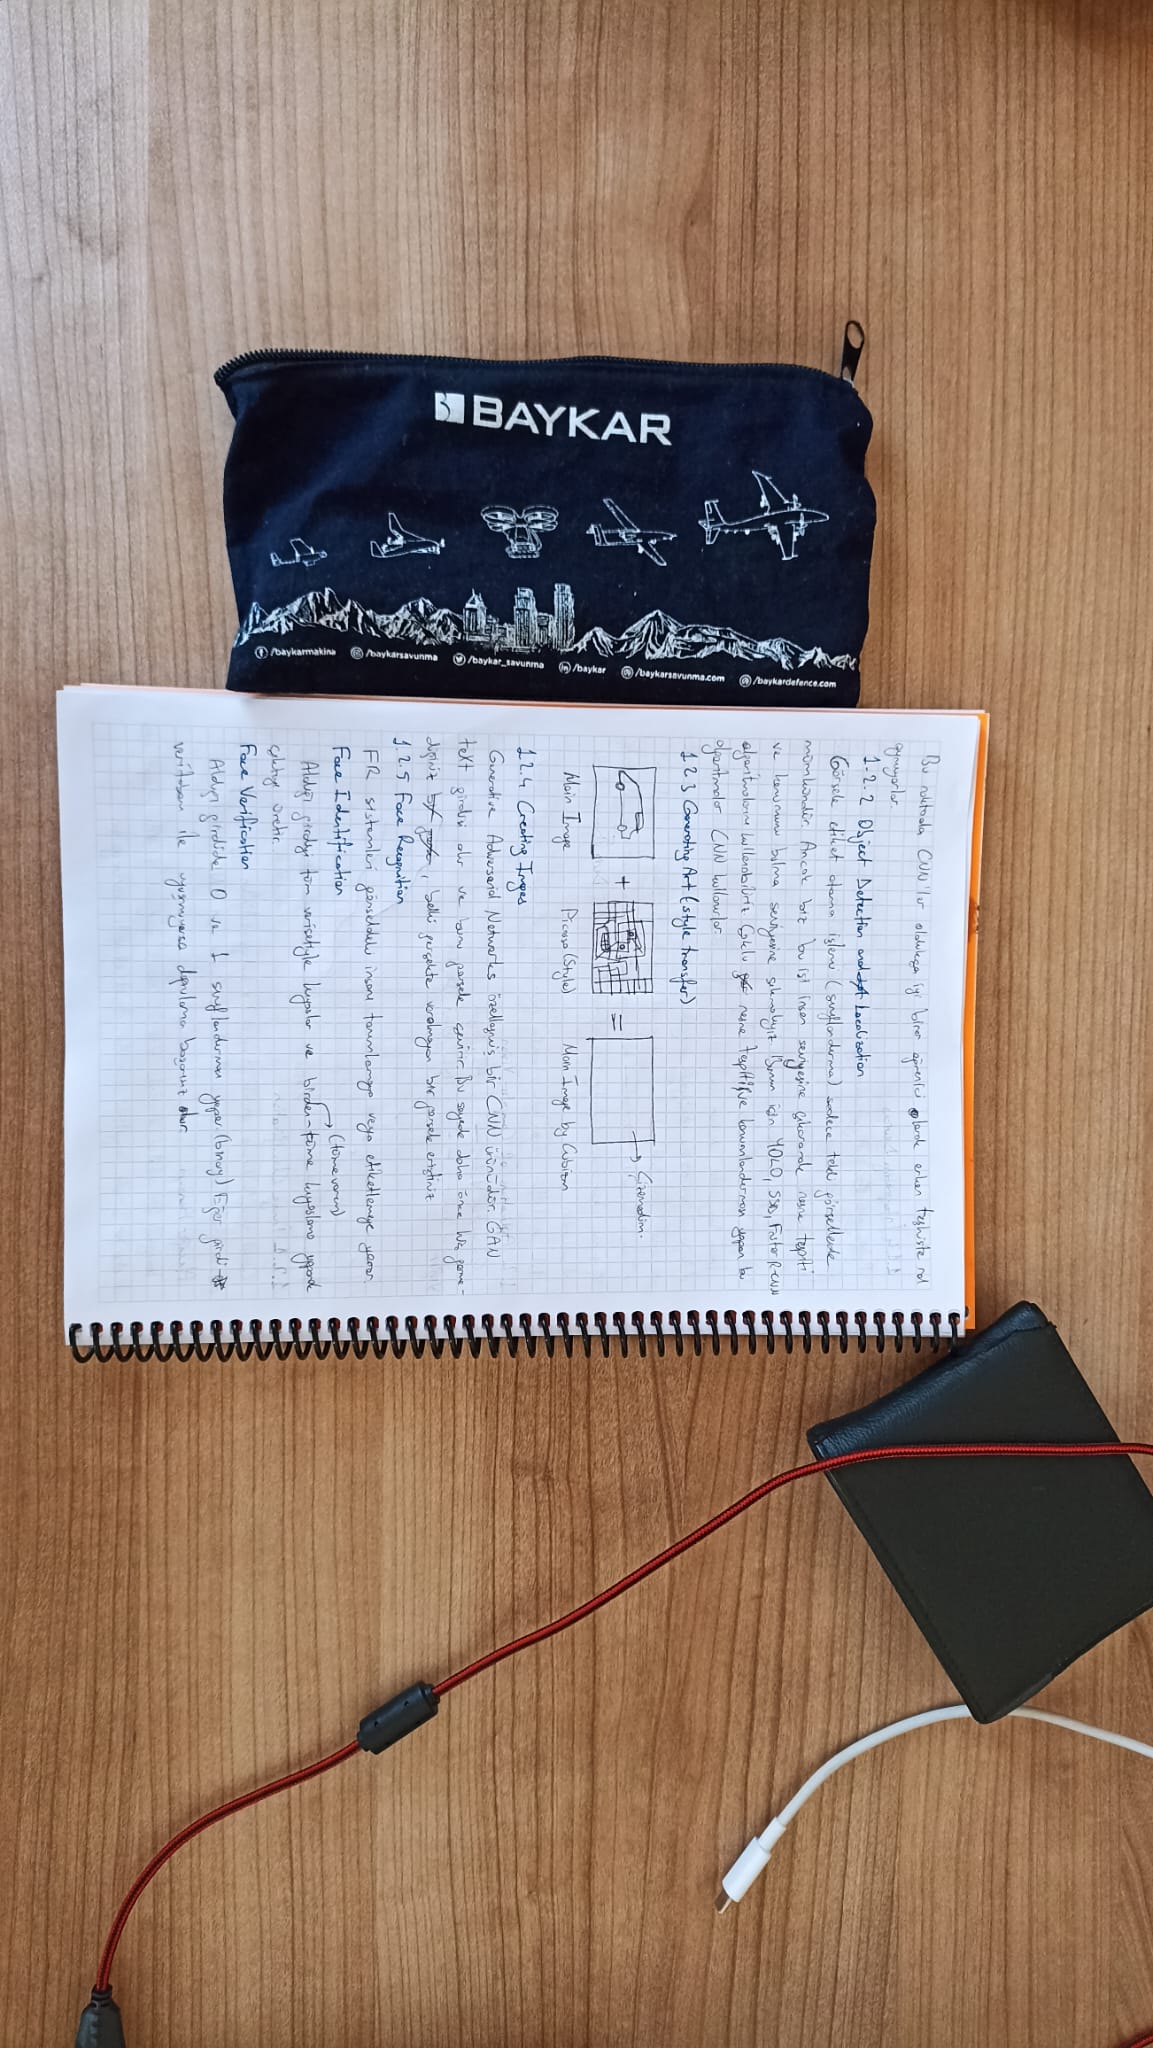 BAYKAR
/baykarmakina /baykarsavunma /baykar_savunma /baykar /baykarsavunma.com /baykardefence.com
Bu noktada CNN'ler oldukça iyi birer öğrenici olarak erken teşhiste rol
oynuyorlar
1.2.2 Object Detection and Localization
Görsele etiket atama işlemi (sınıflandırma) sadece tekil görsellerde
mümkündür. Ancak biz bu işi insan seviyesine çıkararak nesne tespiti
ve konumunu bilme seviyesine çıkmalıyız. Bunun için YOLO, SSD, Faster R-CNN
algoritmalarını kullanabiliriz. Çoklu nesne tespiti ve konumlandırması yapan bu
algoritmalar CNN kullanırlar.
1.2.3 Generating Art (style transfer)
+ = → Çizemedim.
Main Image Picasso (Style) Main Image by Cubism
1.2.4 Creating Images
Generative Adversarial Networks özelleşmiş bir CNN ürünüdür. GAN
text girdisi alır ve bunu görsele çevirir. Bu sayede daha önce hiç görme-
diğiniz, belki gerçekte varolmayan bir görsele erişiriz
1.2.5 Face Recognition
FR sistemleri görseldeki insanı tanımlamaya veya etiketlemeye yarar.
Face Identification
→ (tüme varım)
Aldığı girdiyi tüm verisetiyle kıyaslar ve birden-tüme kıyaslama yaparak
çıktıyı üretir.
Face Verification
Aldığı girdide 0 ve 1 sınıflandırması yapar (binary) Eğer girdi
veritabanı ile uyuşmuyorsa doğrulama başarısız olur.